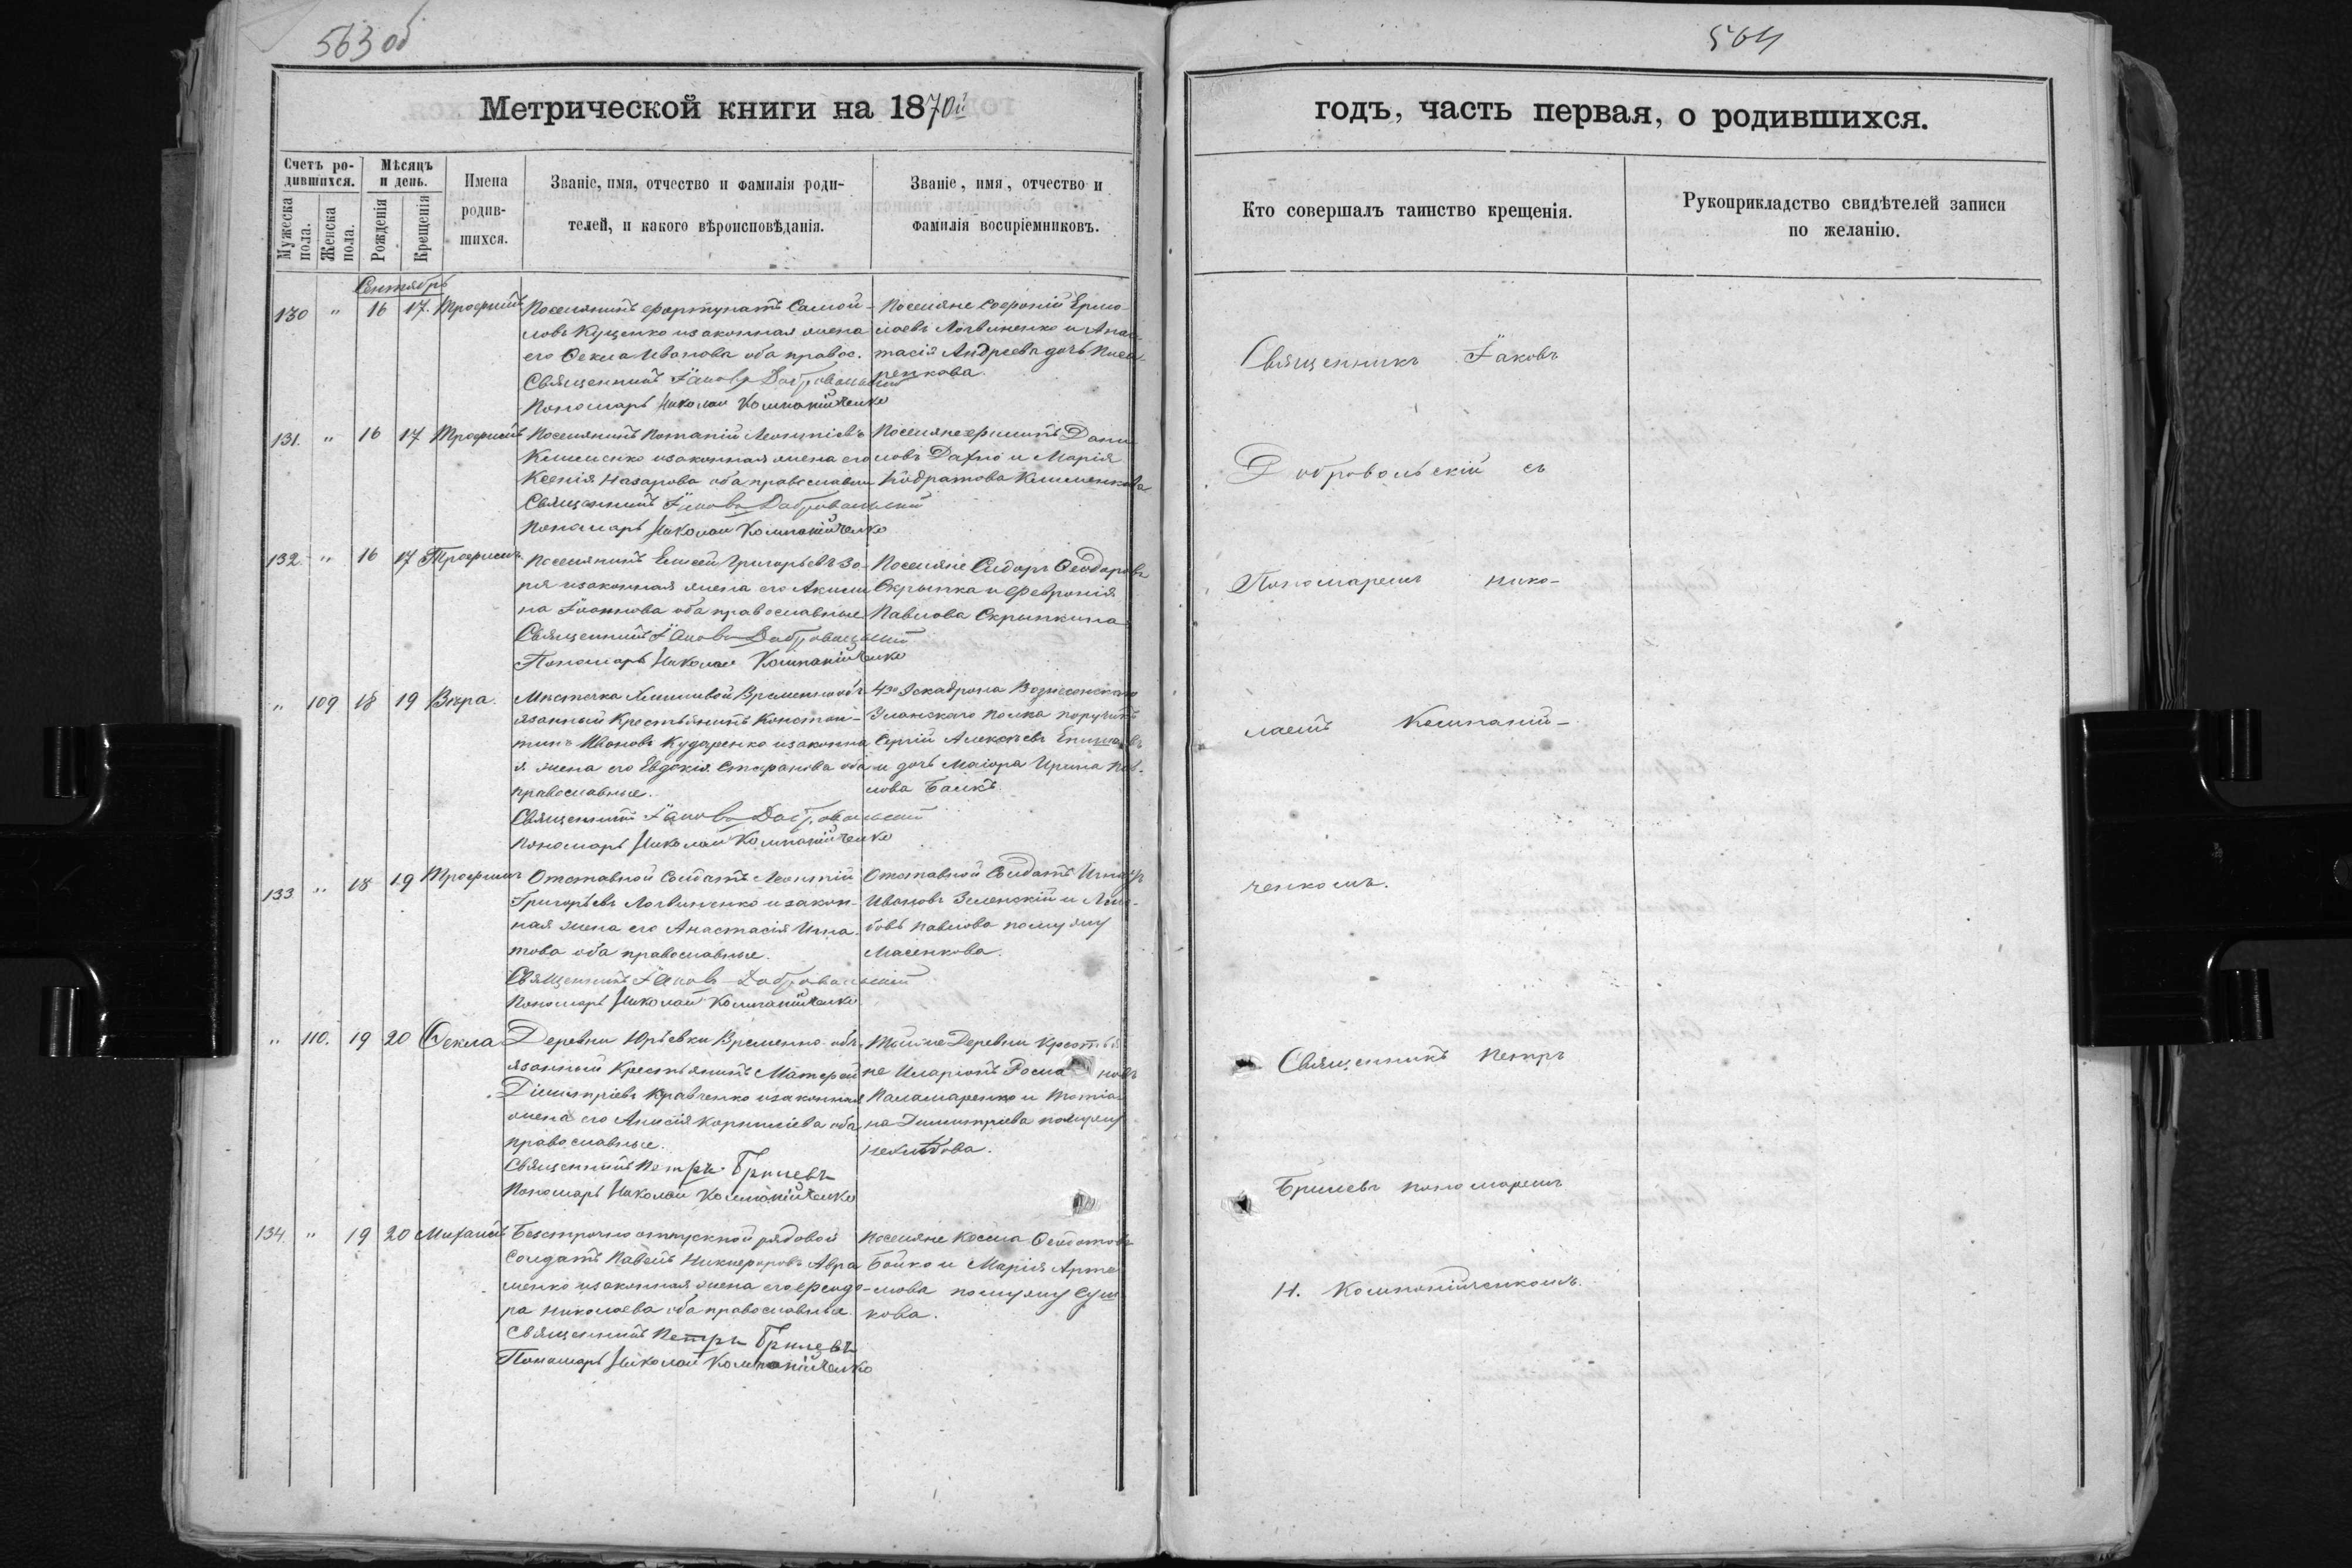 563 об
Метрической книги на 1870й
Счетъ ро-
дившихся.
Мѣсяцъ
и день.
Мужеска
пола.
Женска
пола.
Рожденія
Крещенія
Имена
родив-
шихся.
Званіе, имя, отчество и фамилія роди-
телей, и какого вѣроисповѣданія.
Званіе, имя, отчество и
фамилія воспріемниковъ.
Сентябрь
130 " 16 17. Трофимъ
Поселянинъ Фортунатъ Самой-
ловъ Куценко и законная жена
его Ѳекла Иванова оба правос.
Священникъ Іаковъ Добровольскій
Пономарь Николай Компанійченко
Поселяне Софроній Ермо-
лаевъ Логвиненко и Анас-
тасія Андреева дочь
ренкова.
131. " 16 17 Трофимъ
Поселянинъ Потапій Леонтіевъ
Клименко и законная жена его
Ксенія Назарова оба православны
Священникъ Іаковъ Добровольскій
Пономарь Николай Компанійченко
Поселяне Филипъ Дани-
ловъ Дахно и Марія
Кодратова Клименкова
132. " 16 17 Трофимъ
Поселянинъ Елисей Григорьевъ Зо-
ря и законная жена его Акили-
на Іоаннова оба православные
Священникъ Іаковъ Добровольскій
Пономарь Николай Компанійченко
Поселяне Сидоръ Ѳеодоровъ
Скрыпка и Февронія
Павлова Скрыпкина
" 109 18 19 Вѣра.
Мѣстечка Временно об-
язанный Крестьянинъ Констан-
тинъ Ивановъ Кударенко и законна
я жена его Евдокія Стефанова оба
православные.
Священникъ Іаковъ Добровольскій
Пономарь Николай Компанійченко
4го Эскадрона Вознесенскаго
Уланскаго полка поручикъ
Сергій Алексѣевъ
и дочь Маіора Ирина Пав-
лова Балкъ.
133. " 18 19 Трофимъ
Отставной Солдатъ Леонтій
Григорьевъ Логвиненко и закон-
ная жена его Анастасія Игна-
това оба православные.
Священникъ Іаковъ Добровольскій
Пономарь Николай Компанійченко
Отставной Солдатъ Игнатъ
Ивановъ Зеленскій и Лю-
бовь Павлова по мужу
Масенкова.
" 110. 19 20 Ѳекла
Деревни Юрьевки Временно-об-
язанный Крестьянинъ Матфей
Димитріевъ Кравченко и законная
жена его Анисія Корниліева оба
православные.
Священникъ Петръ Бришевъ
Пономарь Николай Компанійченко
Той же Деревни Крестья-
не Иларіонъ Рома новъ
Паламаренко и Татіа-
на Димитріева по мужу
134. " 19 20 Михаилъ
Безсрочно отпускной рядовой
солдатъ Павелъ Никифоровъ Авра
менко и законная жена его Феодо-
ра Николаева оба православные
Священникъ Петръ Бришевъ
Пономарь Николай Компанійченко
Поселяне Косма Ѳедотовъ
Бойко и Марія Арте-
мова по мужу Суш
кова.
564
годъ, часть первая, о родившихся.
Кто совершалъ таинство крещенія.
Рукоприкладство свидѣтелей записи
по желанію.
Священникъ Іаковъ
Добровольскій съ
Пономаремъ Нико-
лаемъ Компаній-
ченкомъ.
Священникъ Петръ
Бришевъ пономаремъ
Н. Компанійченкомъ.